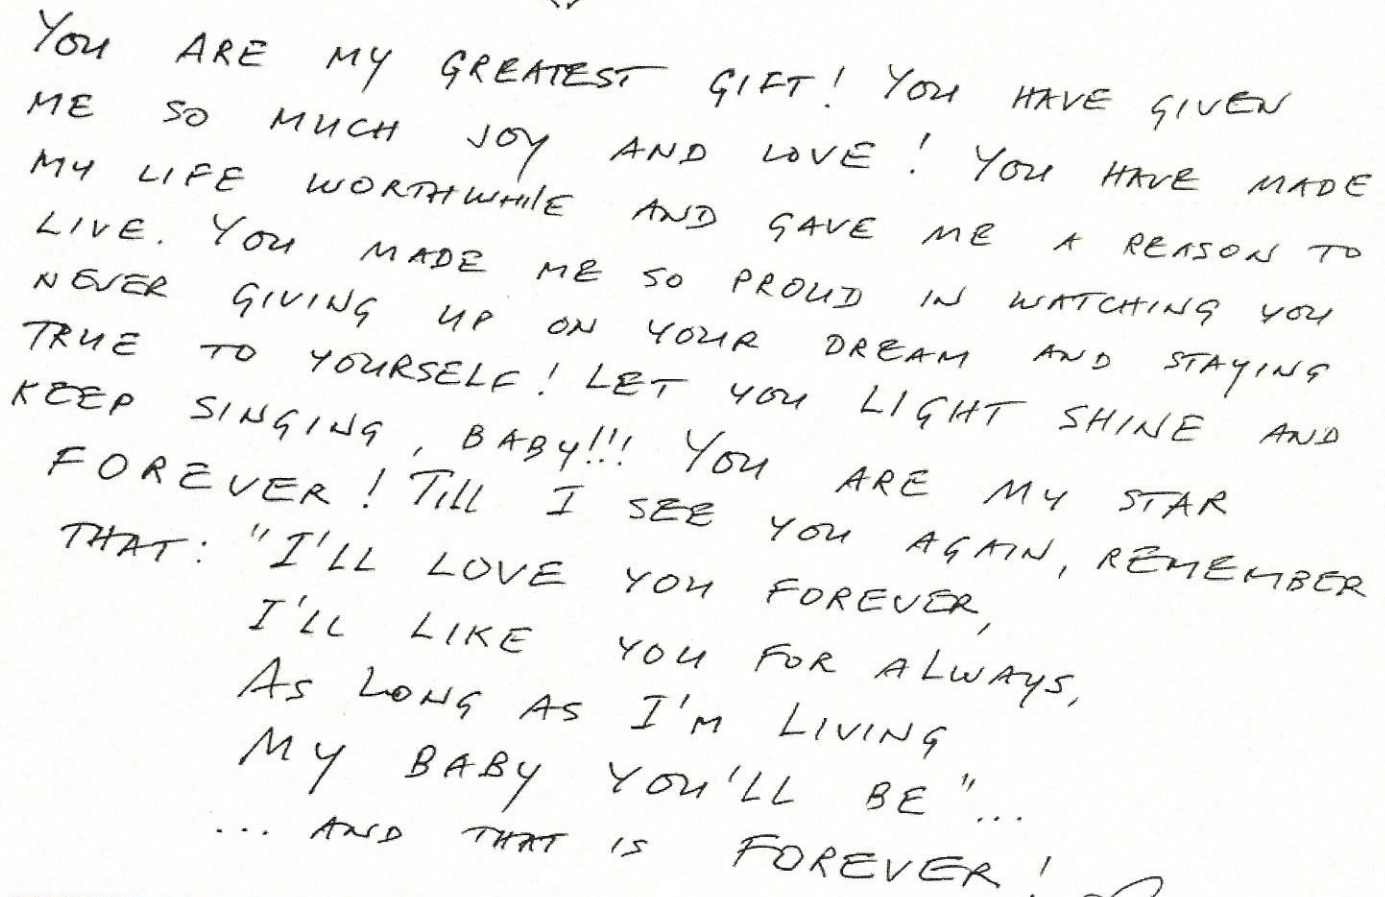 You ARE MY GREATEST GIFT! You HAVE GIVEN
ME SO MUCH JOY AND LOVE! You HAVE MADE
MY LIFE WORTHWHILE AND GAVE ME A REASON TO
LIVE. You MADE ME SO PROUD IN WATCHING YOU
NEVER GIVING UP ON YOUR DREAM AND STAYING
TRUE TO YOURSELF! LET YOU LIGHT SHINE AND
KEEP SINGING, BABY!!! You ARE MY STAR
FOREVER! Till I SEE YOU AGAIN, REMEMBER
THAT: "I'LL LOVE YOU FOREVER,
I'LL LIKE YOU FOR ALWAYS,
As LONG AS I'M LIVING
MY BABY YOU'LL BE"...
... AND THAT IS FOREVER!